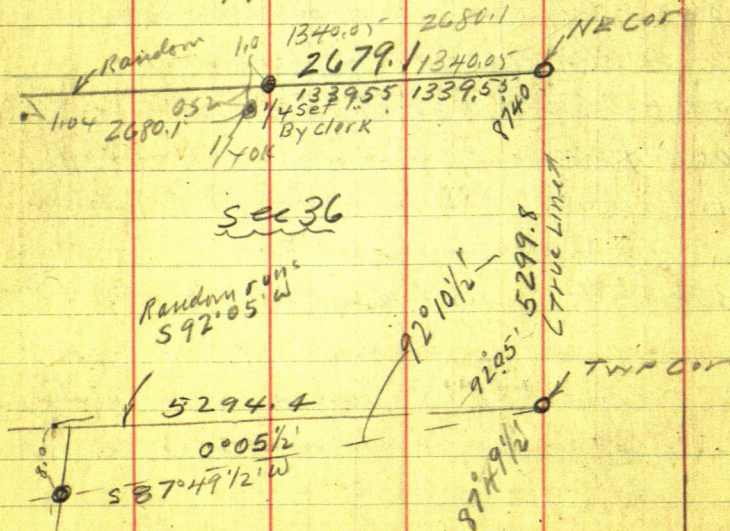 Random
1.0
1340.05
2680.1
NE Cor
2679.1
1340.05
1339.55
1339.55
1.04
2680.1
052
1/4 Set
By Clark
1/4 OK
8740
Sec 36
5299.8
(True Line)
Random runs
S 92°05' W
92°10 1/2'
92°05'
TWP Cor
5294.4
0°05 1/2'
8.0
S 87°49 1/2' W
87°49 1/2'